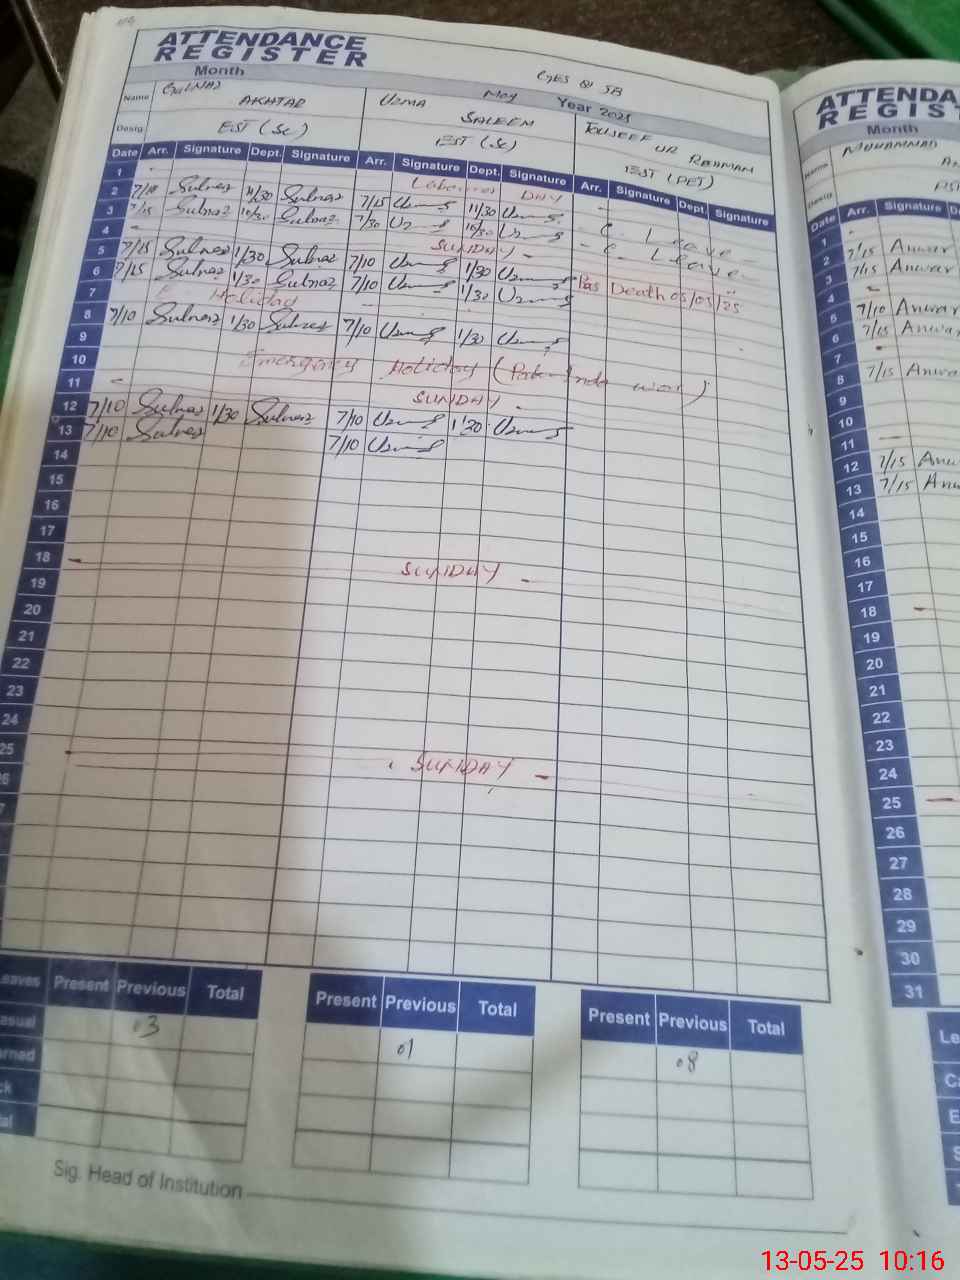 ATTENDANCE
REGISTER
GGES Q SB
Month May Year 2025
Name GULNAZ AKHTAR UZMA SALEEM TOUSEEF UR REHMAN
Desig EST (Sc) EST (Sc) EST (PET)
Date Arr. Signature Dept. Signature Arr. Signature Dept. Signature Arr. Signature Dept. Signature
1 Labour DAY
2 7/10 Gulnaz 11/30 Gulnaz 7/15 Uzma 11/30 Uzma C. Leave
3 7/15 Gulnaz 10/30 Gulnaz 7/30 Uzma 10/30 Uzma C. Leave
4 SUNDAY
5 7/15 Gulnaz 1/30 Gulnaz 7/10 Uzma 1/30 Uzma Death 05/05/25
6 7/15 Gulnaz 1/30 Gulnaz 7/10 Uzma 1/30 Uzma
7 E. Holiday
8 7/10 Gulnaz 1/30 Gulnaz 7/10 Uzma 1/30 Uzma
9
10 Emergency Holiday (Pak-Inda war)
11 SUNDAY
12 7/10 Gulnaz 1/30 Gulnaz 7/10 Uzma 1/30 Uzma
13 7/10 Gulnaz 7/10 Uzma
14
15
16
17
18 SUNDAY
19
20
21
22
23
24
25 SUNDAY
Present Previous Total Present Previous Total Present Previous Total
03 01 08
Sig. Head of Institution
ATTENDA
REGIS
Month
Name MUHAMMAD
Desig
Date Arr. Signature
1
2 7/15 Anwar
3 7/15 Anwar
4
5 7/10 Anwar
6 7/15 Anwar
7
8 7/15 Anwar
9
10
11
12 7/15 Anw
13 7/15 Anw
14
15
16
17
18
19
20
21
22
23
24
25
26
27
28
29
30
31
13-05-25 10:16